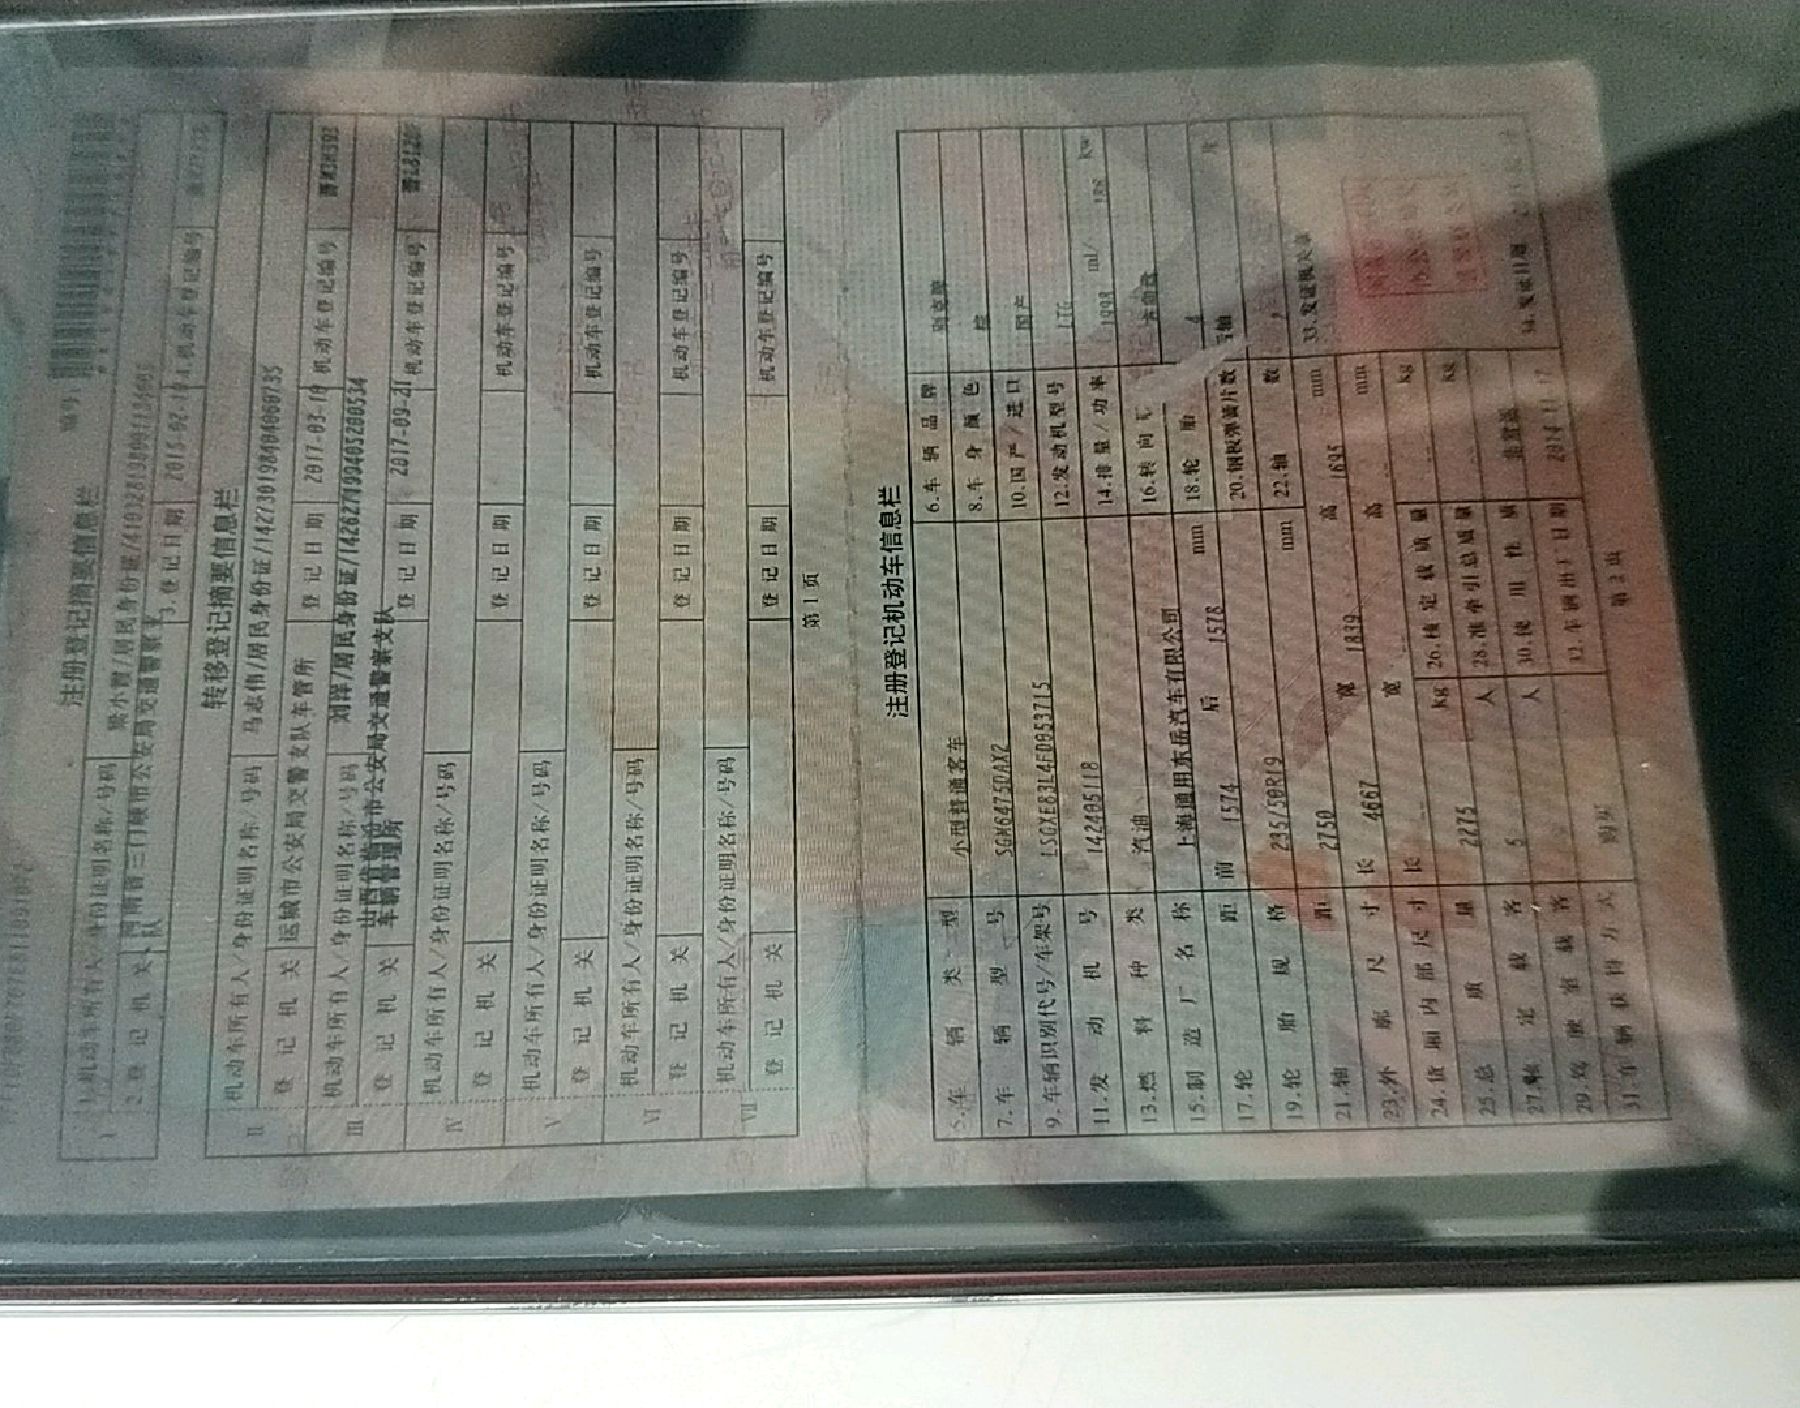 注册登记摘要信息栏
编号
1.机动车所有人/身份证明名称/号码
2.登记机关
3.登记日期
4.机动车登记编号
转移登记摘要信息栏
II 机动车所有人/身份证明名称/号码 马志伟/居民身份证/142730198404060735
登记机关 运城市公安局交警支队车管所 登记日期 2017-03-10 机动车登记编号
III 机动车所有人/身份证明名称/号码 刘洋/居民身份证/142627199405200534
登记机关 山西省临汾市公安局交通警察支队车辆管理所 登记日期 2017-09-21 机动车登记编号
IV 机动车所有人/身份证明名称/号码
登记机关 登记日期 机动车登记编号
V 机动车所有人/身份证明名称/号码
登记机关 登记日期 机动车登记编号
VI 机动车所有人/身份证明名称/号码
登记机关 登记日期 机动车登记编号
VII 机动车所有人/身份证明名称/号码
登记机关 登记日期 机动车登记编号
第1页
注册登记机动车信息栏
5.车辆类型 小型普通客车 6.车辆品牌 别克牌
7.车辆型号 SGM6475DAX2 8.车身颜色 棕
9.车辆识别代号/车架号 LSGXE83L4FD053715 10.国产/进口 国产
11.发动机号 142405118 12.发动机型号 LTG
13.燃料种类 汽油 14.排量/功率 1998 ml/ kw
15.制造厂名称 上海通用东岳汽车有限公司 16.转向 方向盘
17.轮距 前 1574 后 1578 mm 18.轮胎 4
19.轮胎规格 235/50R19 20.钢板弹簧片数 后轴
21.轴距 2750 mm 22.轴数 2
23.外廓尺寸 长 4667 宽 1839 高 1695 mm 33.发证机关章
24.货厢内部尺寸 长 宽 高 mm
25.总质量 2275 kg 26.核定载质量 -- kg
27.核定载客 5 人 28.准牵引总质量 -- kg
29.驾驶室载客 人 30.使用性质 非营运
31.车辆获得方式 购买 32.车辆出厂日期 34.发证日期
第2页